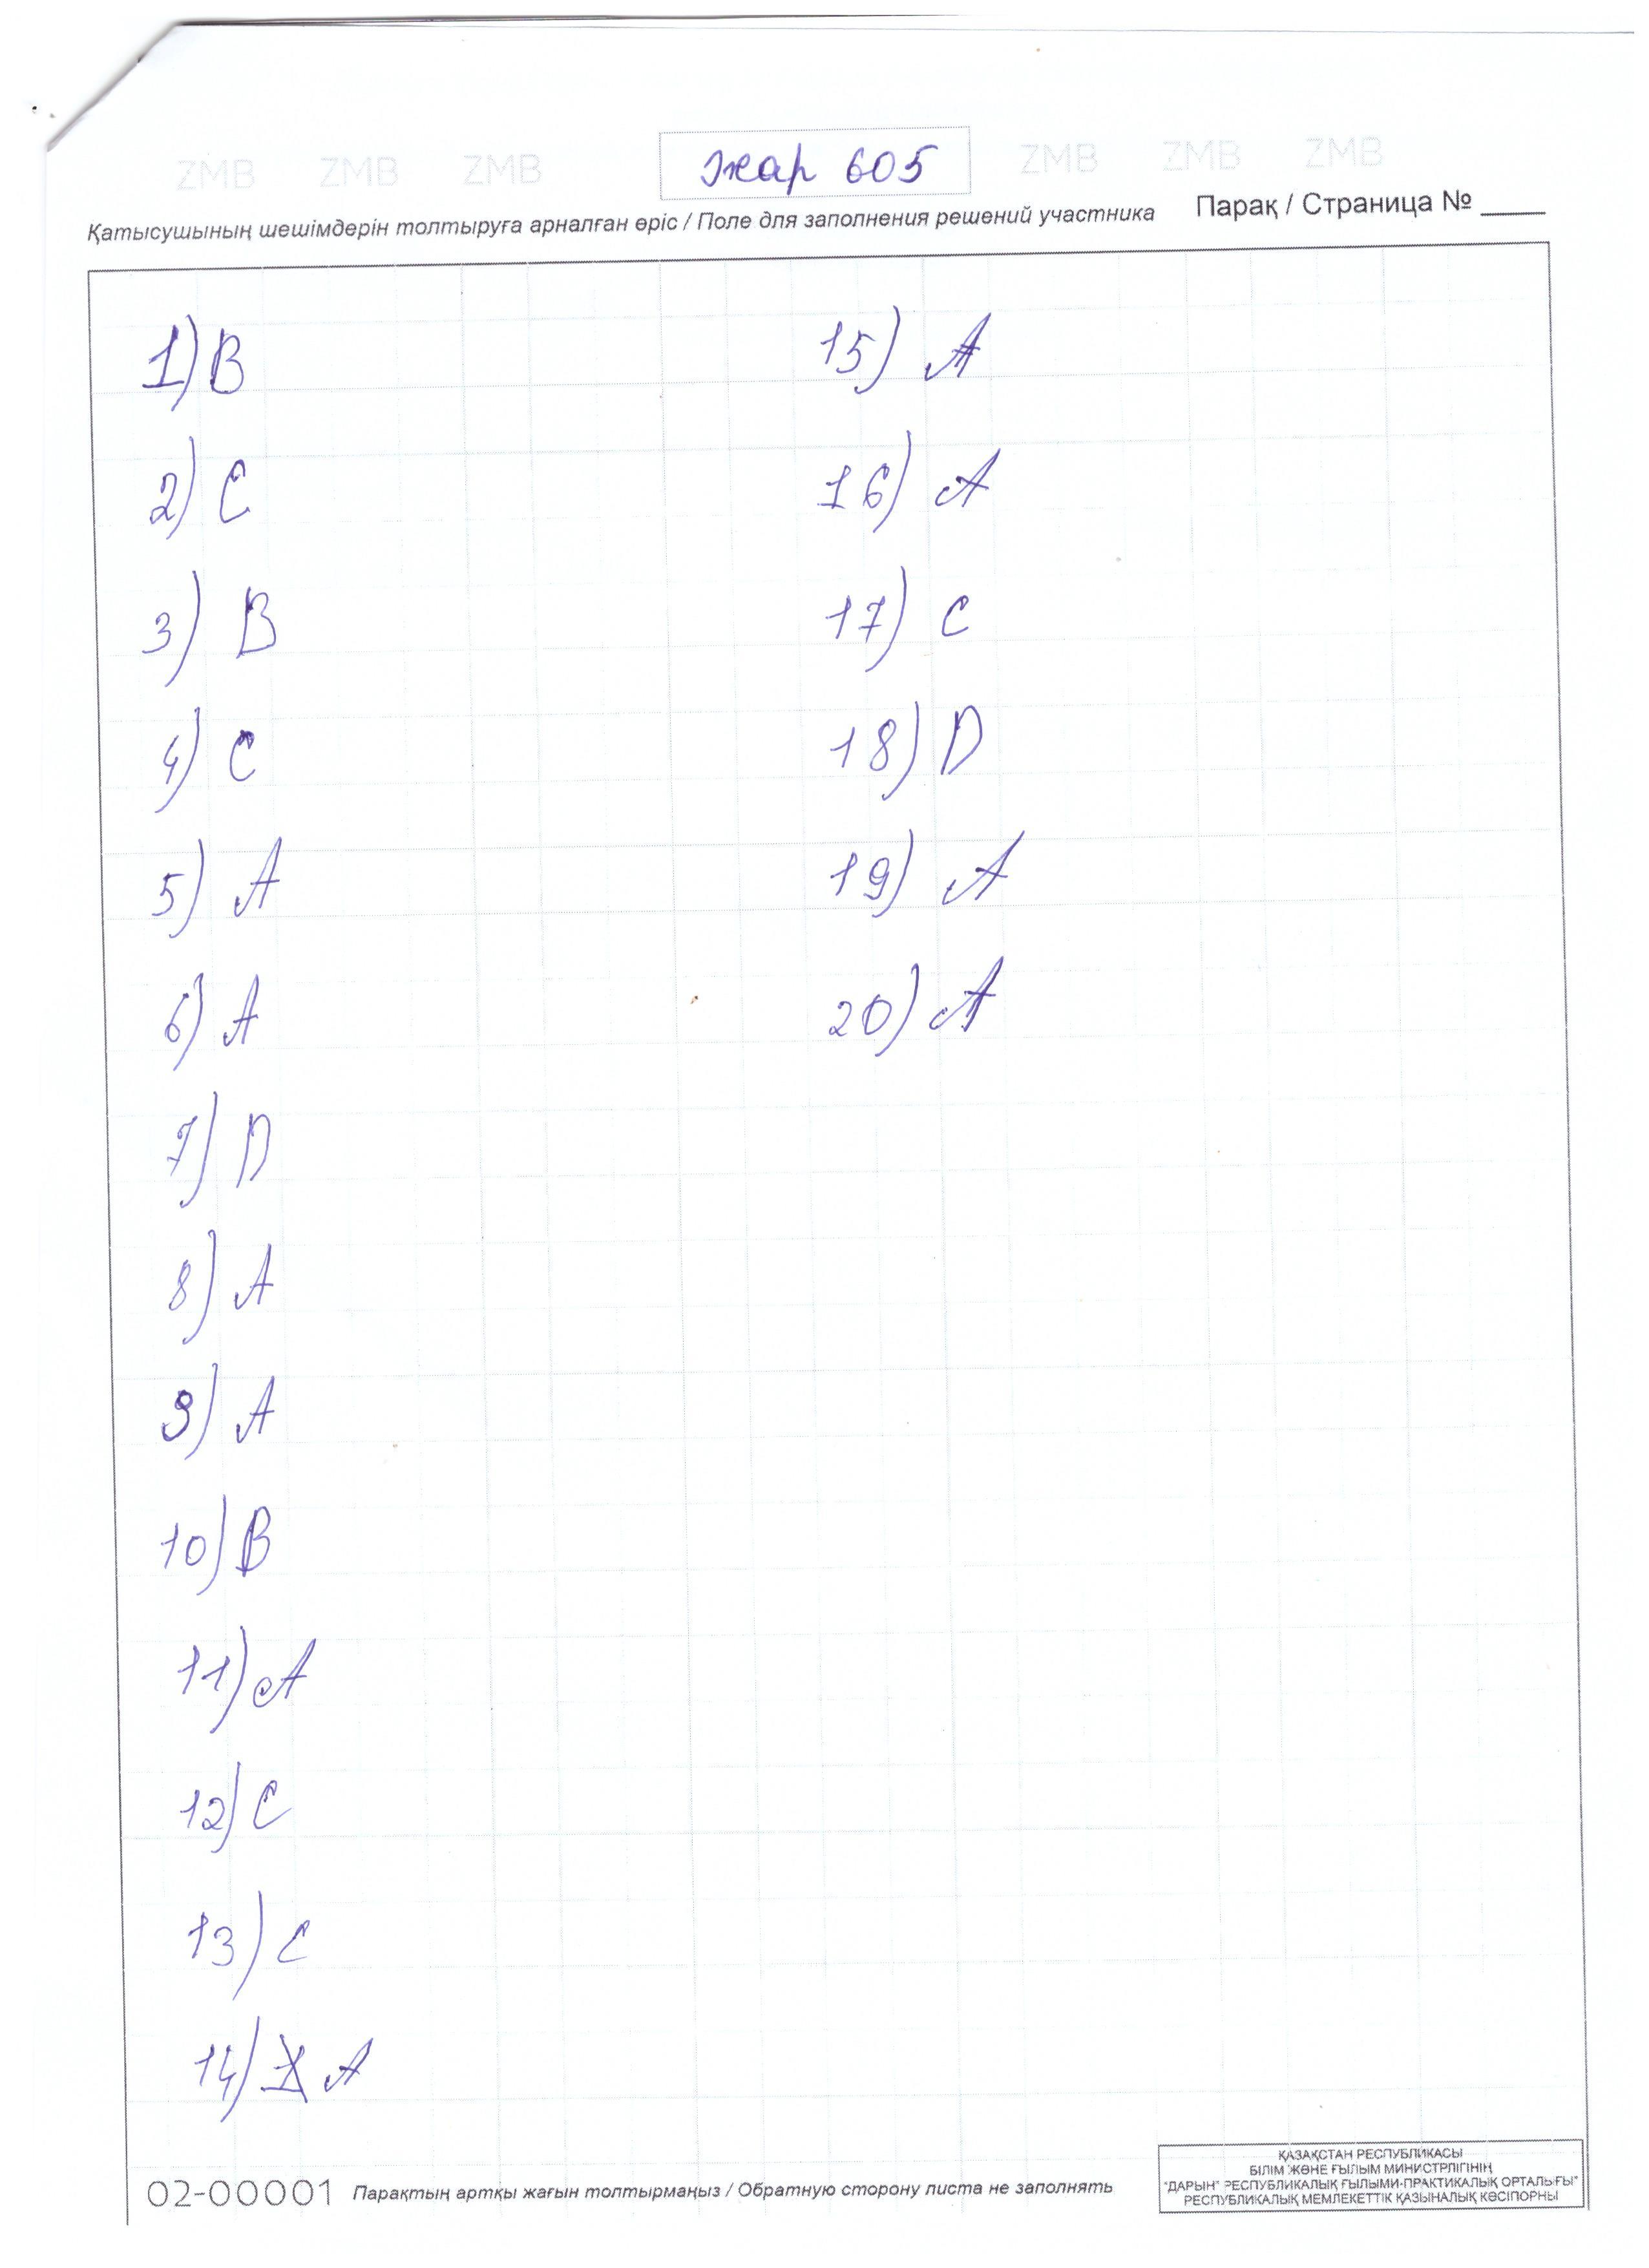 ZMB ZMB ZMB Жар 605 ZMB ZMB ZMB
Қатысушының шешімдерін толтыруға арналған өріс / Поле для заполнения решений участника Парақ / Страница № ____
1) B
2) C
3) B
4) C
5) A
6) A
7) D
8) A
9) A
10) B
11) A
12) C
13) C
14) A
15) A
16) A
17) C
18) D
19) A
20) A
02-00001 Парақтың артқы жағын толтырмаңыз / Обратную сторону листа не заполнять
ҚАЗАҚСТАН РЕСПУБЛИКАСЫ
БІЛІМ ЖӘНЕ ҒЫЛЫМ МИНИСТРЛІГІНІҢ
"ДАРЫН" РЕСПУБЛИКАЛЫҚ ҒЫЛЫМИ-ПРАКТИКАЛЫҚ ОРТАЛЫҒЫ"
РЕСПУБЛИКАЛЫҚ МЕМЛЕКЕТТІК ҚАЗЫНАЛЫҚ КӘСІПОРНЫ